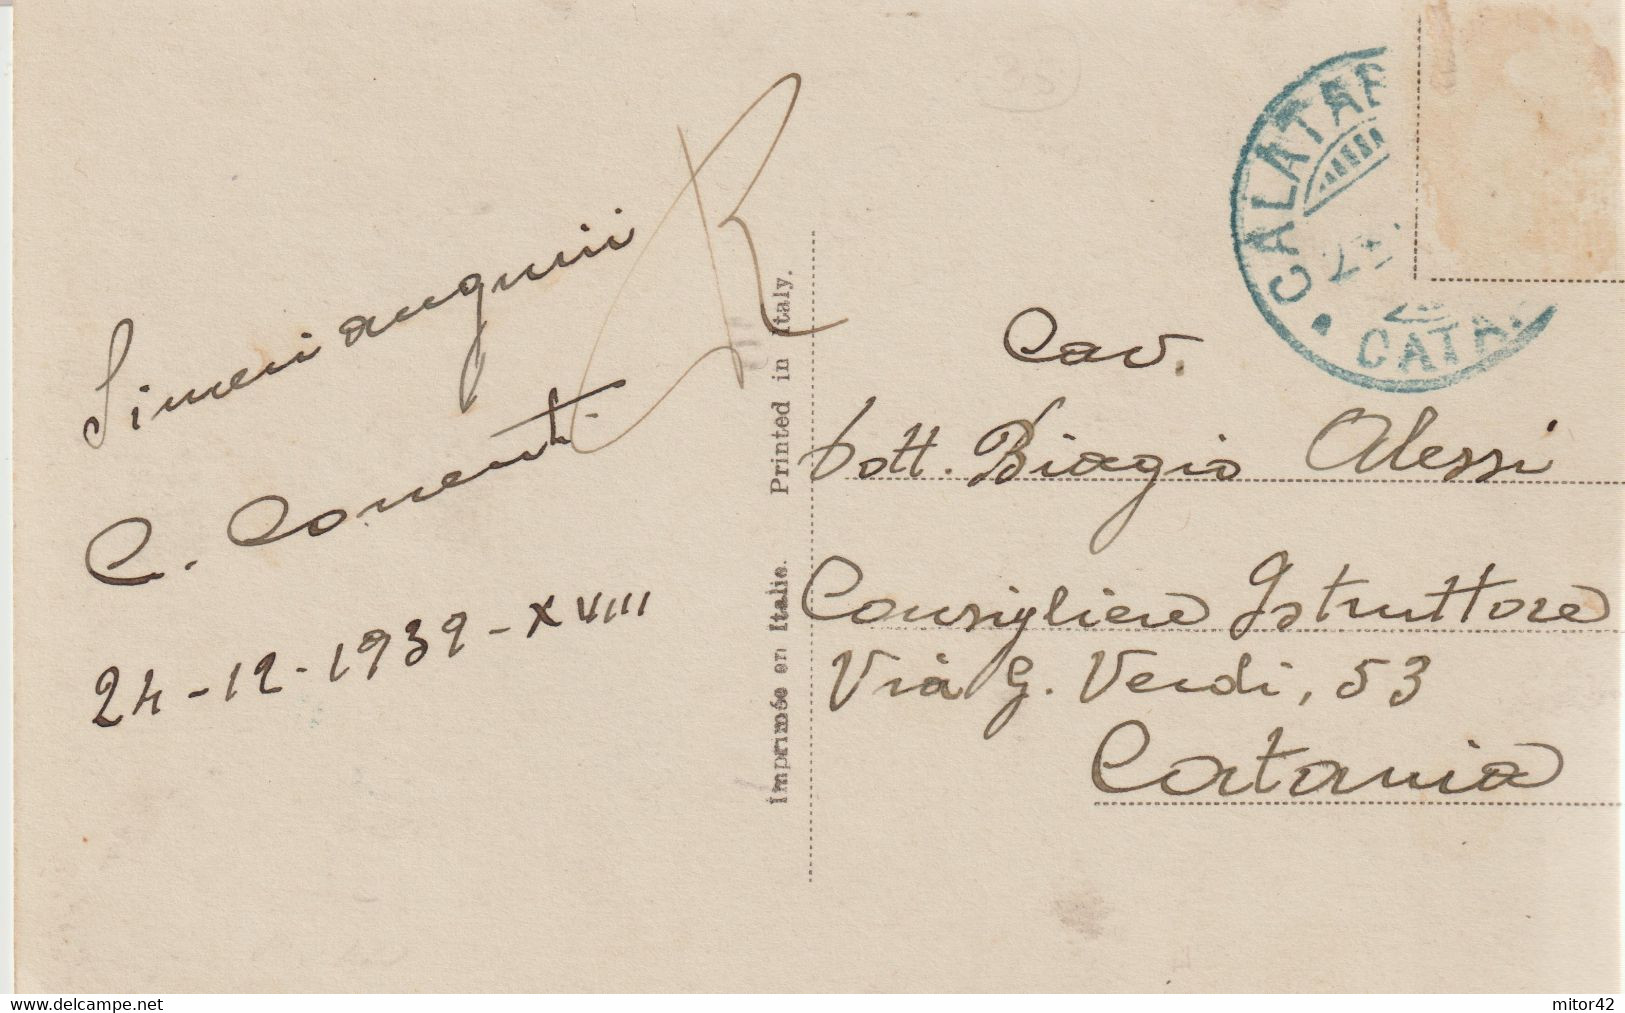 Sinceri auguri
R
C.
24-12-1939-XVIII
Imprimée en Italie. Printed in Italy.
CALATA
CATA
Cav.
Dott. Biagio Alessi
Consigliere Istruttore
Via G. Verdi, 53
Catania
delcampe.net
mitor42